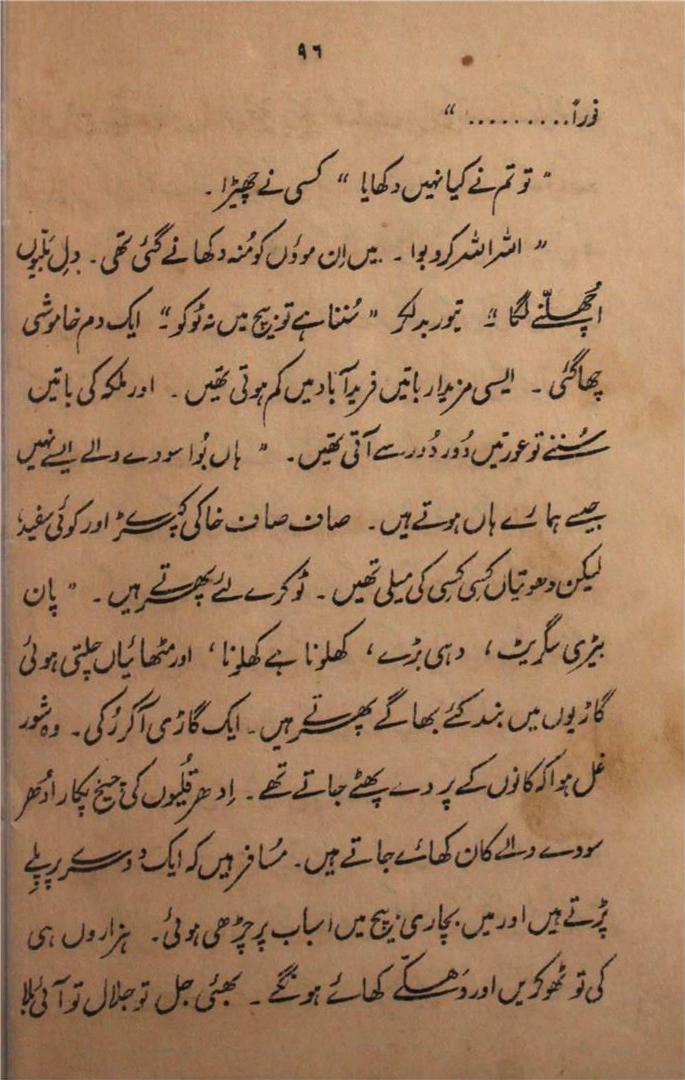 ۹۶
فوراً.......... "
" تو تم نے کیا نہیں دکھایا " کسی نے چھیڑا۔
" اللہ اللہ کرو بوا ۔ میں اِن موؤں کو مُنہ دکھانے گئی تھی۔ دِل بلّیوں
اُچھلنے لگا " تیور بدلکر " سُننا ہے تو بیچ میں نہ ٹوکو " ایک دم خاموشی
چھا گئی ۔ ایسی مزیدار باتیں فریدآباد میں کم ہوتی تھیں ۔ اور ملکہ کی باتیں
سُننے تو عورتیں دُور دُور سے آتی تھیں۔ " ہاں بُوا سودے والے ایسے نہیں
جیسے ہمارے ہاں ہوتے ہیں۔ صاف صاف خاکی کپڑے اور کوئی سفید،
لیکن دھوتیاں کسِی کسِی کی میلی تھیں۔ ٹوکرے لئے پھرتے ہیں ۔ " پان
بیڑی سگریٹ ، دہی بڑے ، کھلونا ہے کھلونا ، اور مٹھائیاں چلتی ہوئی
گاڑیوں میں بند کئے بھاگے پھرتے ہیں۔ ایک گاڑی آکر رُکی ۔ وہ شور
غل ہوا کہ کانوں کے پردے پھٹے جاتے تھے ۔ اِدھر قُلیوں کی چیخ پکار اُدھر
سودے والے کان کھائے جاتے ہیں۔ مُسافر ہیں کہ ایک دوسرے پر پِلے
پڑتے ہیں اور میں بچاری بیچ میں اسباب پر چڑھی ہوئی۔ ہزاروں ہی
کی تو ٹھوکریں اور دھکّے کھائے ہونگے ۔ بھئی جل تو جلال تو آئی بَلا